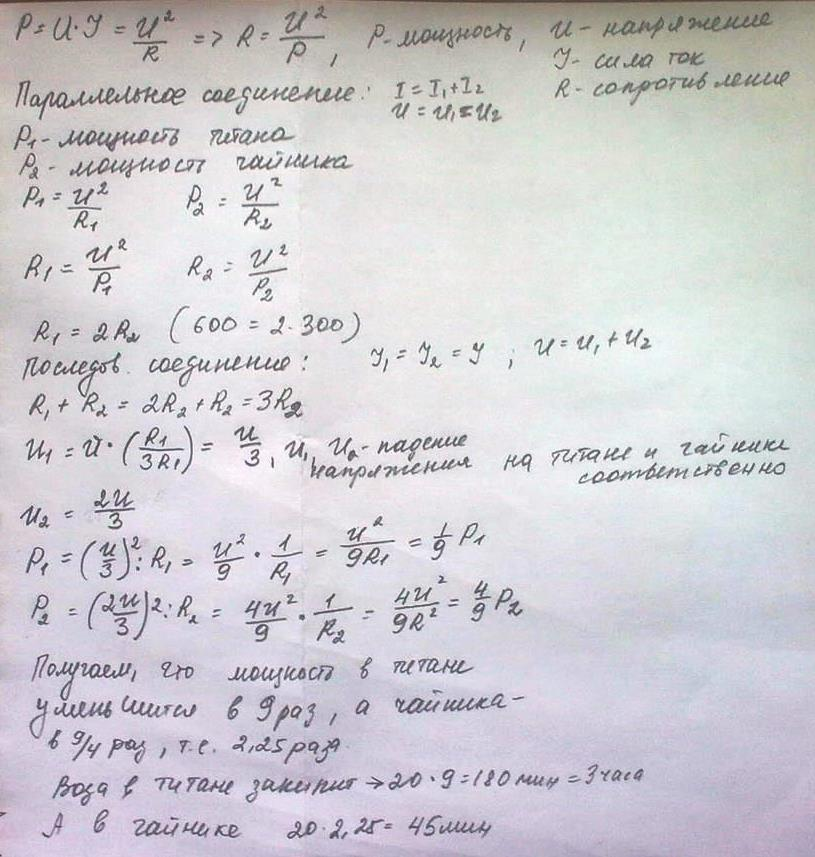 P = U·Y = U²/R => R = U²/P, P-мощность, U-напряжение
Y-сила ток
Параллельное соединение: I = I₁+I₂ R-сопротивление
U = U₁=U₂
P₁-мощность титана
P₂-мощность чайника
P₁ = U²/R₁ P₂ = U²/R₂
R₁ = U²/P₁ R₂ = U²/P₂
R₁ = 2R₂ (600 = 2·300)
Последов. соединение: Y₁ = Y₂ = Y ; U = U₁ + U₂
R₁ + R₂ = 2R₂ + R₂ = 3R₂
U₁ = U·(R₁/3R₁) = U/3, U₁, U₂-падение
напряжения на титане и чайнике
соответственно
U₂ = 2U/3
P₁ = (U/3)² : R₁ = U²/9 · 1/R₁ = U²/9R₁ = 1/9 P₁
P₂ = (2U/3)² : R₂ = 4U²/9 · 1/R₂ = 4U²/9R² = 4/9 P₂
Получаем, что мощность в титане
уменьшится в 9 раз, а чайника-
в 9/4 раз, т.е. 2,25 раза.
Вода в титане закипит → 20·9=180 мин = 3 часа
А в чайнике 20·2,25= 45мин